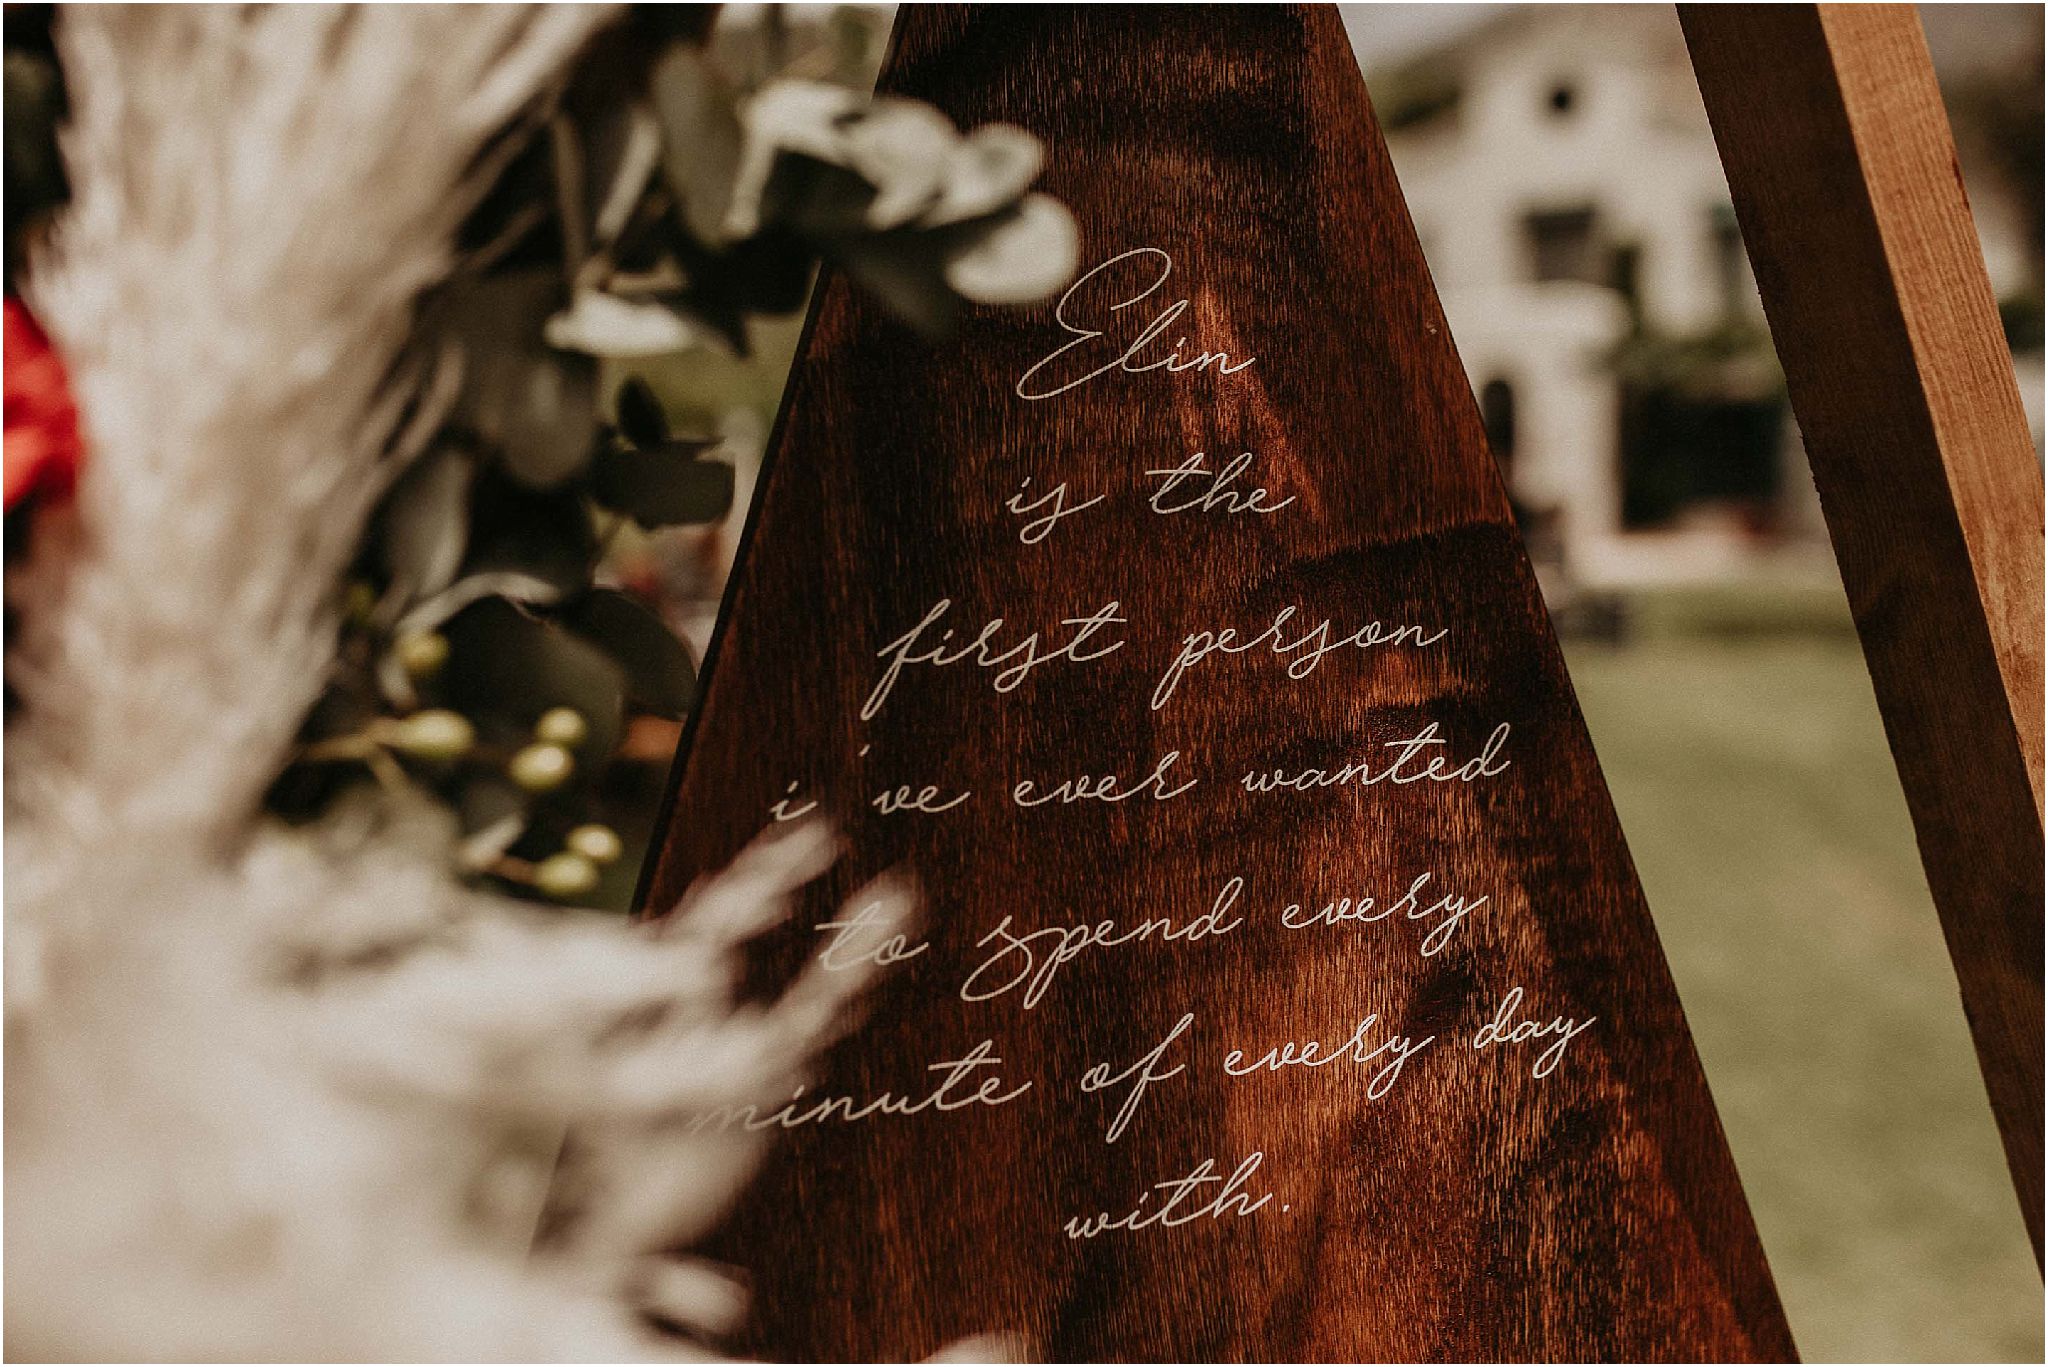 Elin
is the
first person
i 've ever wanted
to spend every
minute of every day
with.